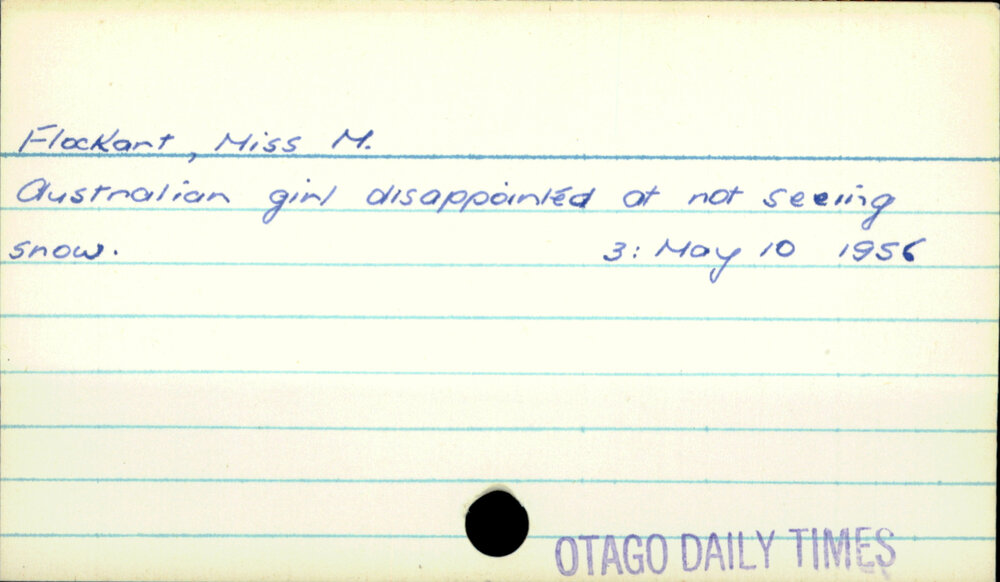 Flockart, Miss M.
Australian girl disappointed at not seeing
snow. 3: May 10 1956
OTAGO DAILY TIMES